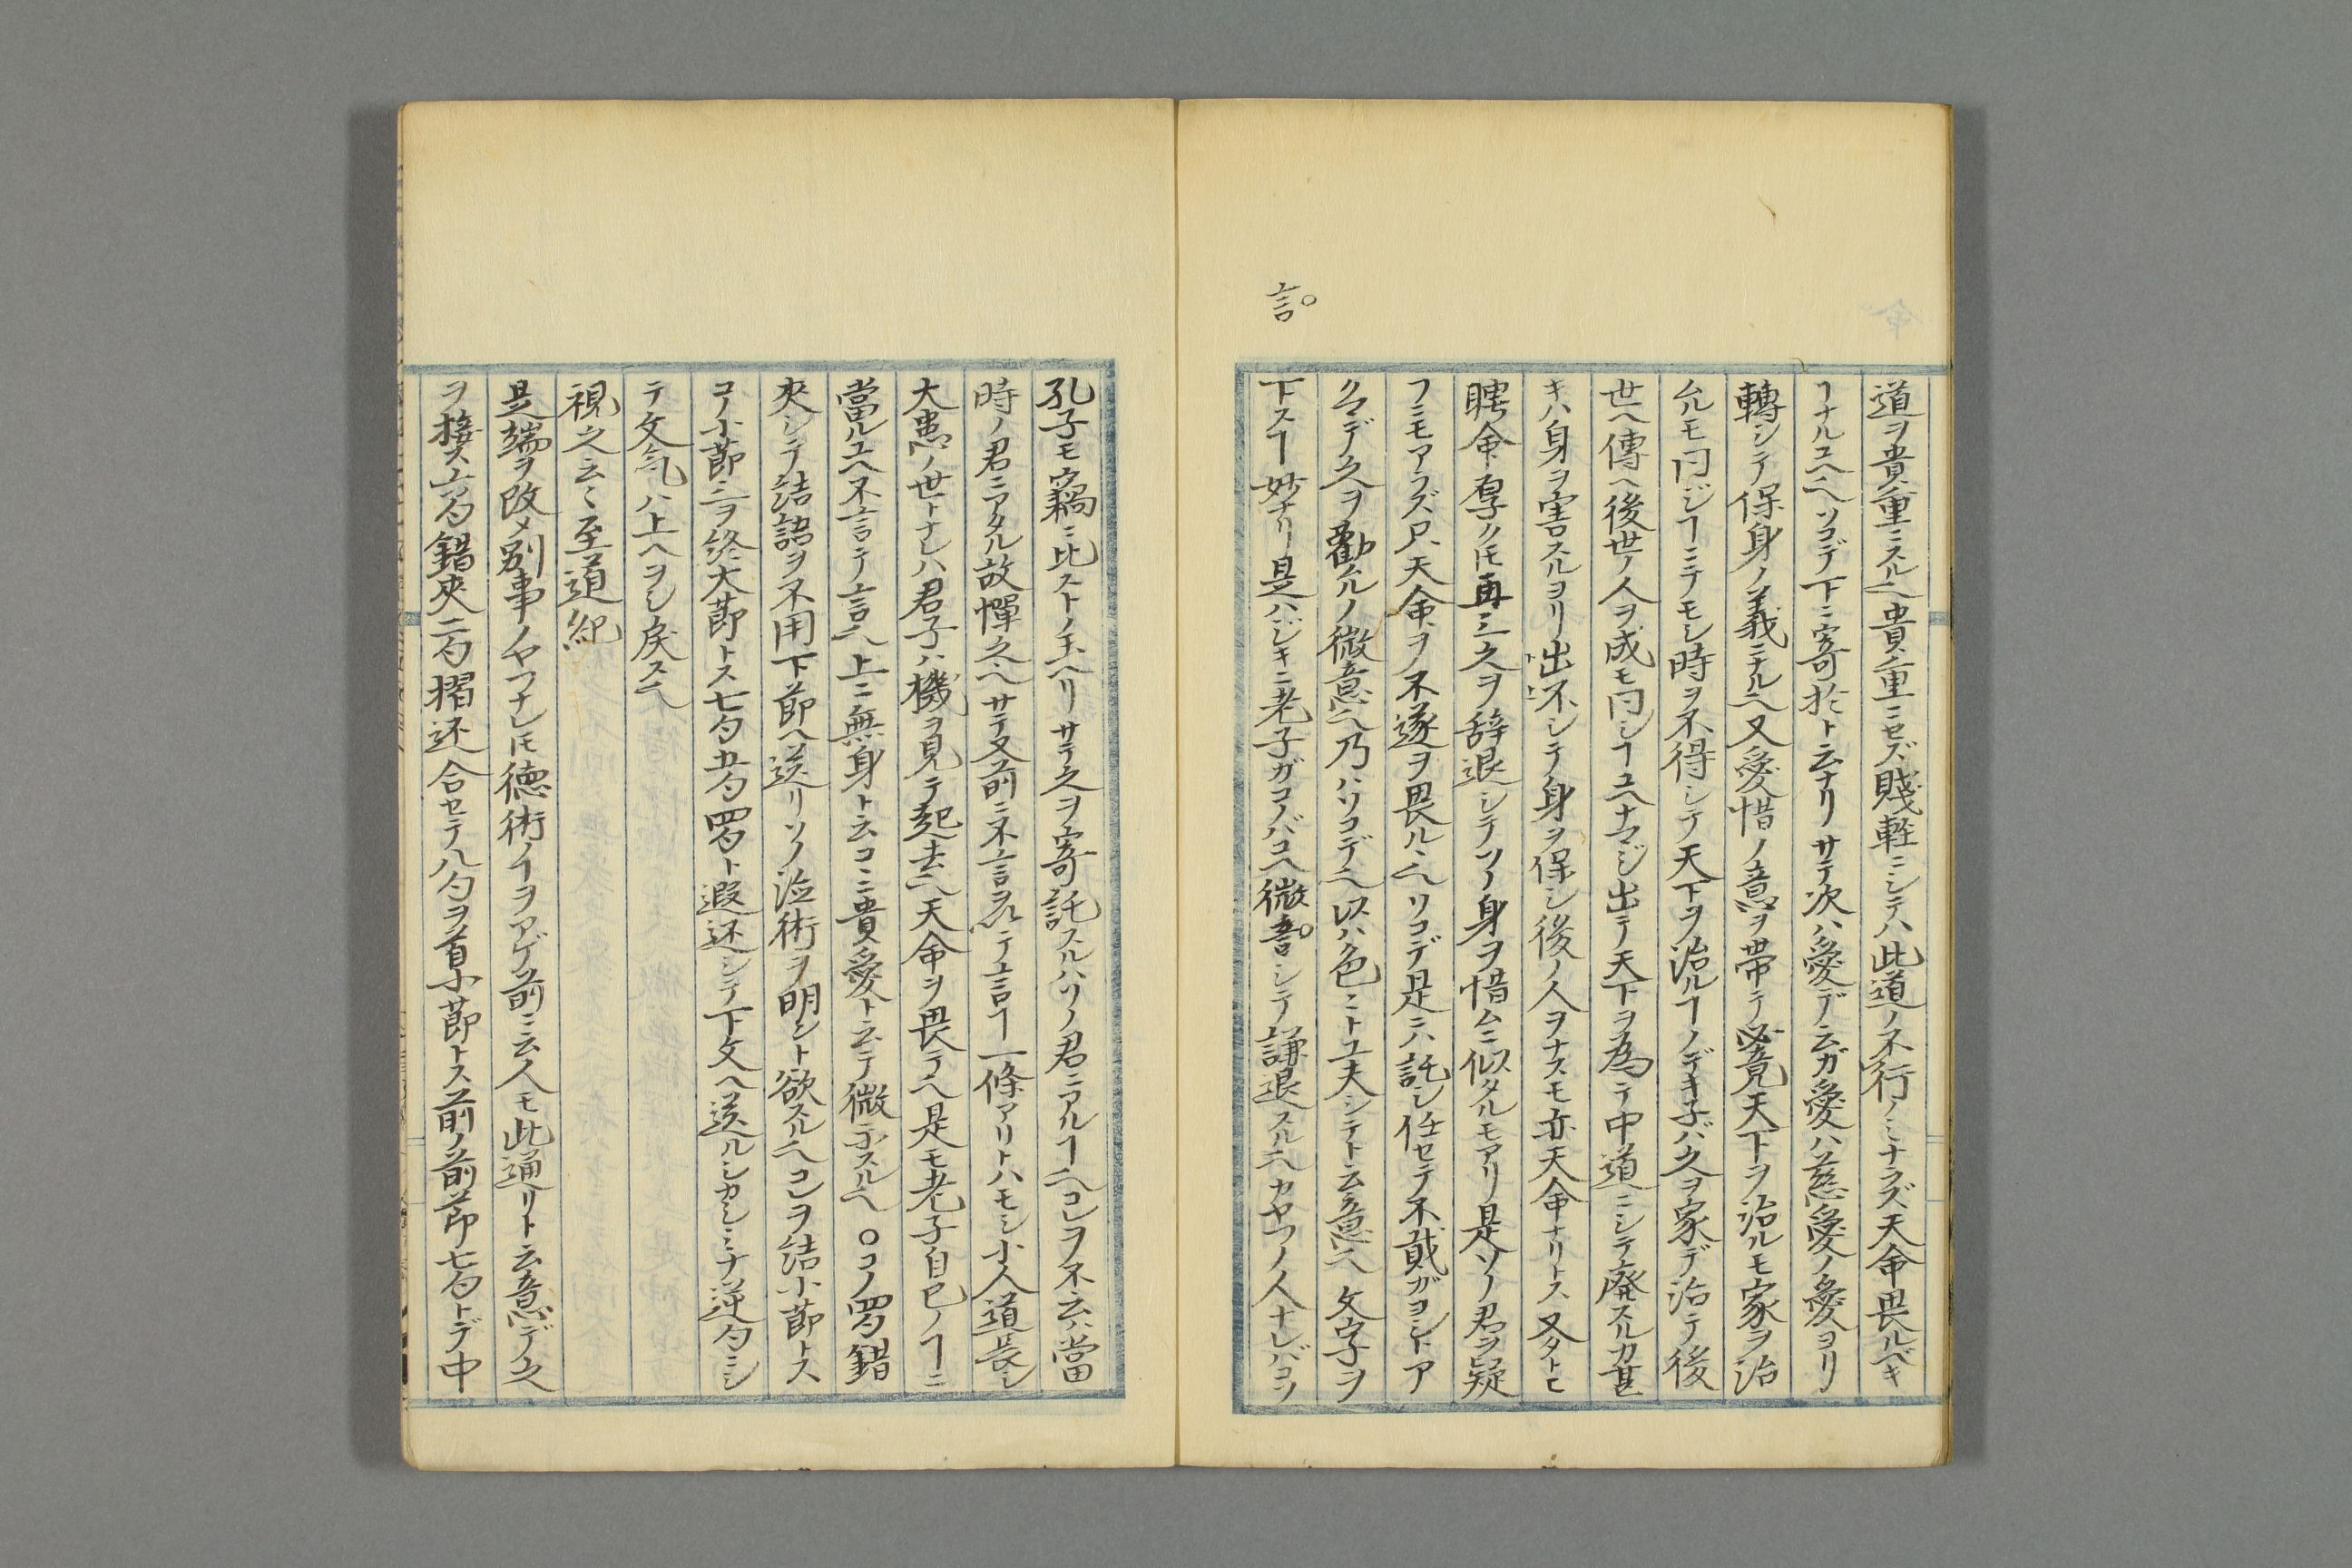 道ヲ貴重ニスル也貴重ニセズ賤軽ニシテハ此道ノ不行ノミナラズ天命畏ルベキ
ヿナルユヘ也ソコデ下ニ寄於ト云ナリサテ次ハ愛デ云ガ愛ハ慈愛ノ愛ヨリ
轉シテ保身ノ義ニナル也又愛惜ノ意ヲ帯テ必竟天下ヲ治ルモ家ヲ治
ムルモ同ジヿニテモシ時ヲ不得シテ天下ヲ治ルヿノデキ子バ之ヲ家デ治テ後
世ヘ傳ヘ後世ノ人ヲ成モ同シヿユヘナマジ出テ天下ヲ為テ中道ニシテ廃スルカ甚
キハ身ヲ害スルヨリ出不シテ身ヲ保シ後ノ人ヲナスモ亦天命ナリトス又タトヒ
聘命厚クトモ再三之ヲ辞退シテソノ身ヲ惜ムニ似タルモアリ是ソノ君ヲ疑
フニモアラズ只天命ヲ不遂ヲ畏ル也ソコデ是ニハ託シ任セテ不貳ガヨシトア
クマデ之ヲ勸ムルノ微意也乃ハソコデ也以ハ色ニト工夫シテト云意也文字ヲ
下スヿ妙ナリ是ハジキニ老子ガコノバコヘ微言シテ謙退スル也カヤフノ人ナレバコソ
言
孔子モ竊ニ比ストノ玉ヘリサテ之ヲ寄託スルハソノ君ニアルヿ也コレヲ不云ハ當
時ノ君ニアタル故憚之也サテ又前ニ不言テ言ヿ一條アリトハモシ小人道長シ
大患ノ世トナレハ君子ハ機ヲ見テ起去也天命ヲ畏テ也是モ老子自己ノヿニ
當ルユヘ不言テ言也上ニ無身ト云コニ貴愛ト云テ微示スル也○コノ四勺錯
夾シテ結語ヲ不用下節ヘ送リソノ術ヲ明シト欲スル也コレヲ結小節トス
コノ小節ニヲ終大節トス七勺五勺四勺ト遐还シテ下文ヘ送ルシカシミナ逆勺ニシ
テ文気ハ上ヘヲシ戻ス也
視之云〻至道紀
是端ヲ改メ別事ノヤフナレトモ徳術ノヿヲアゲ前ニ云人モ此通リト云意デ之
ヲ接ス六勺錯夾二勺摺还合セテ八勺ヲ首小節トス前ノ前節七勺トデ中